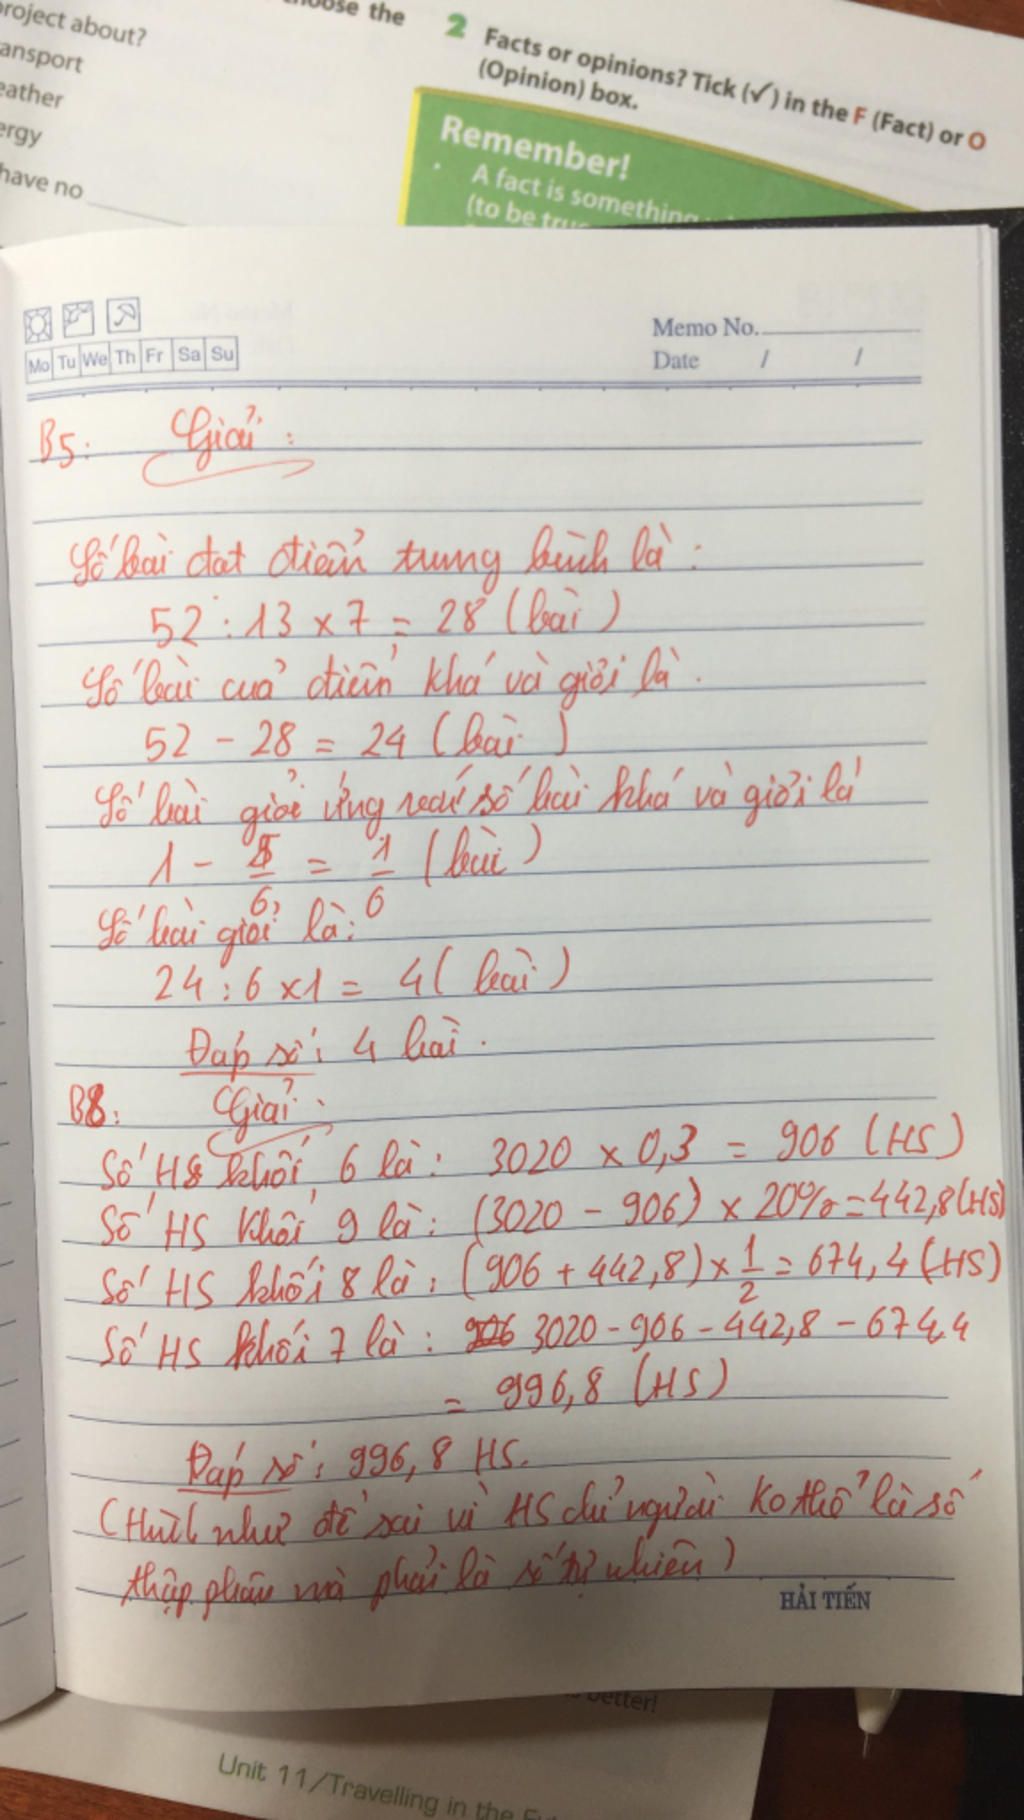 project about?
hoose the
2 Facts or opinions? Tick (✓) in the F (Fact) or O
(Opinion) box.
ansport
eather
ergy
have no
Remember!
A fact is something
(to be true
Memo No.
Mo Tu We Th Fr Sa Su
Date / /
B5: Giải:
Số bài đạt điểm trung bình là:
52 : 13 x 7 = 28 (bài)
Số bài của điểm khá và giỏi là.
52 - 28 = 24 (bài)
Số bài giỏi ứng số bài khá và giỏi là
1 - 5/6 = 1/6 (bài)
Số bài giỏi là:
24 : 6 x 1 = 4 (bài)
Đáp số: 4 bài.
B8: Giải:
Số HS khối 6 là: 3020 x 0,3 = 906 (HS)
Số HS khối 9 là: (3020 - 906) x 20% = 442,8 (HS)
Số HS khối 8 là: (906 + 442,8) x 1/2 = 674,4 (HS)
Số HS khối 7 là: 3020 - 906 - 442,8 - 674,4
= 996,8 (HS)
Đáp số: 996,8 HS.
(Hình như đề sai vì HS chỉ người ko thể là số
thập phân mà phải là số tự nhiên)
HẢI TIẾN
better!
Unit 11/Travelling in the Fu